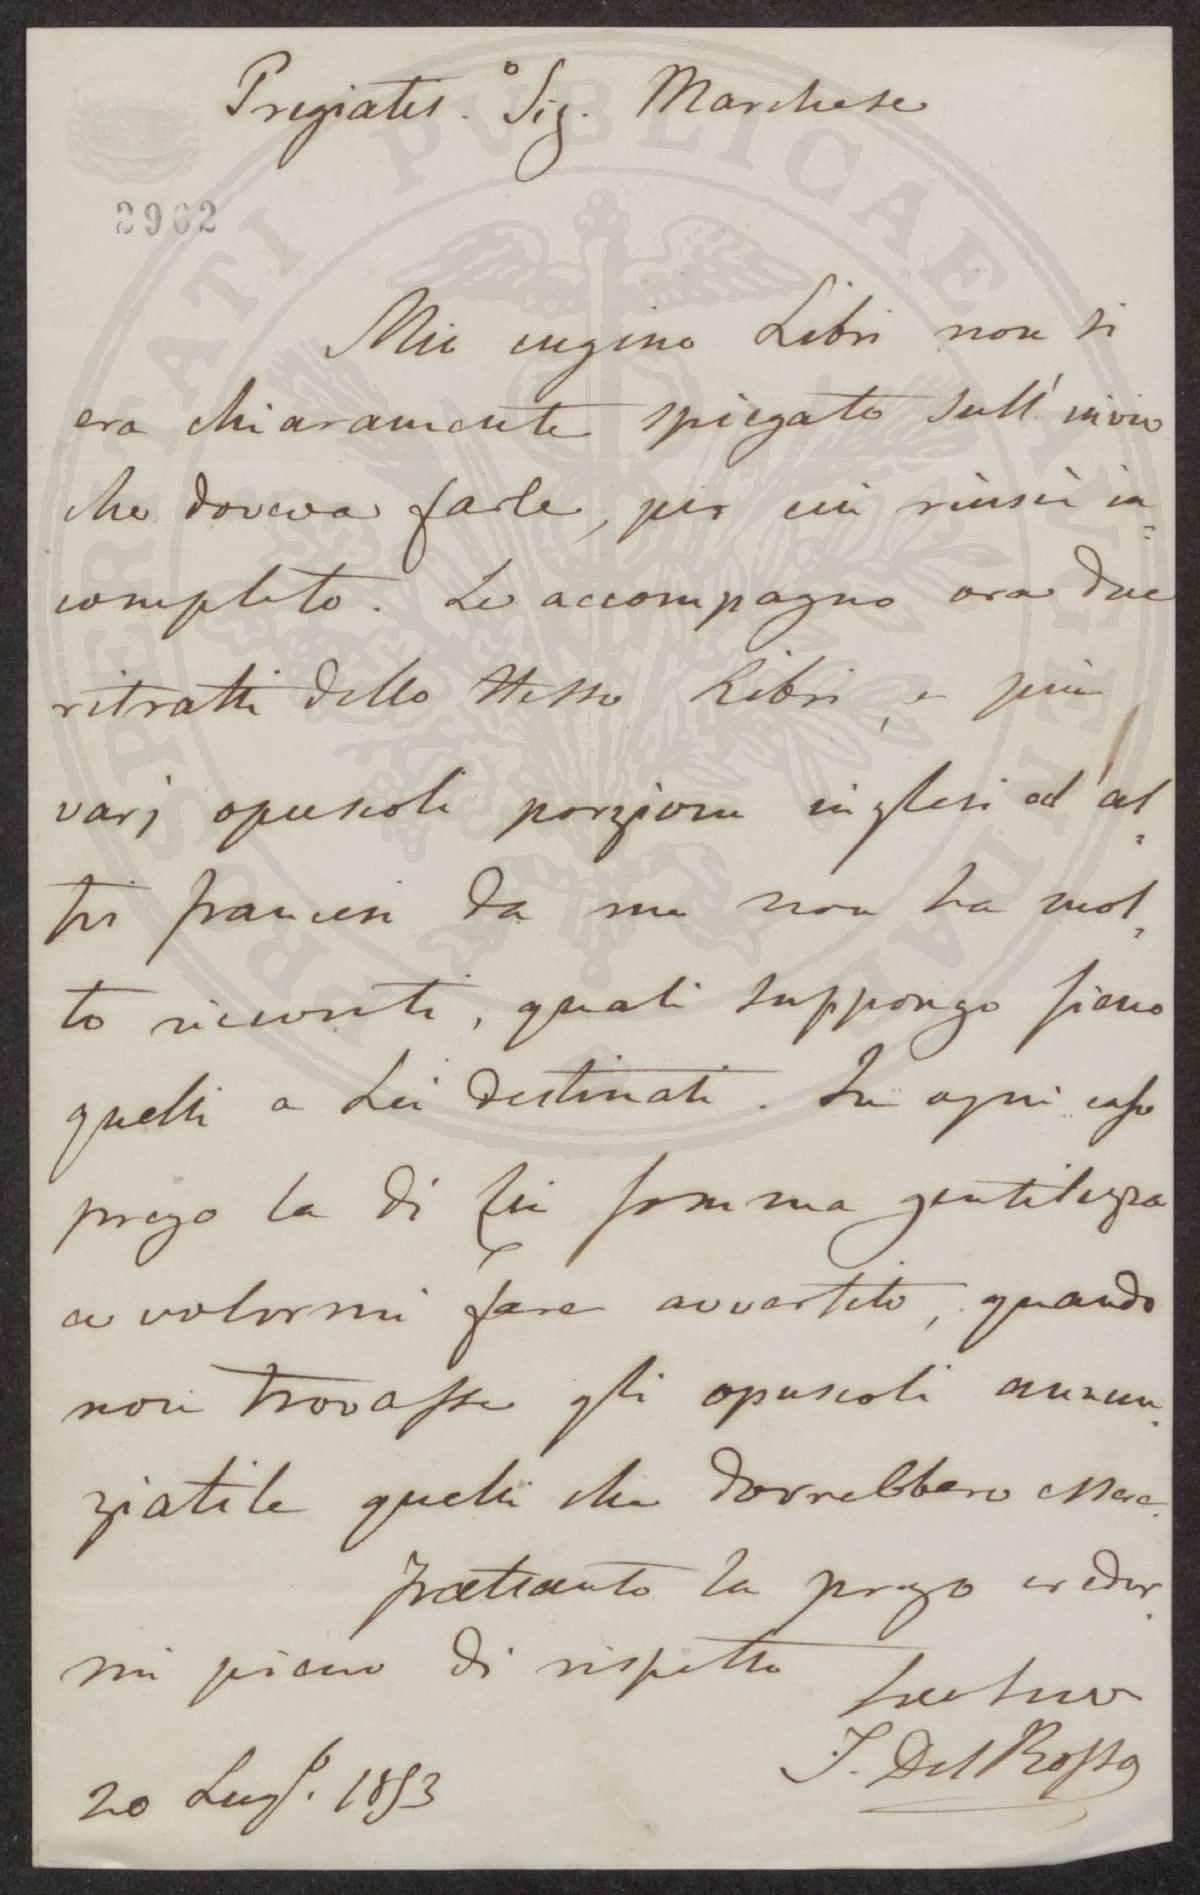 Pregiatis.º Sig. Marchese
3962
Mio cugino Libri non si
era chiaramente spiegato sull'invio
che doveva farle, per cui riuscì in=
completo. Le accompagno ora due
ritratti dello stesso Libri, e più
varj opuscoli porzione inglesi ed al=
tri francesi da me non ha mol=
to ricevuti, quali suppongo sieno
quelli a Lei destinati. In ogni caso
prego la di Lei somma gentilezza
a volermi fare avvertito, quando
non trovasse gli opuscoli annun=
ziatile quelli che dovrebbero essere.
Frattanto la prego creder=
mi pieno di rispetto
20 Lugº. 1853
F. Del Rosso
PROSPERITATI PUBLICAE AUGENDAE